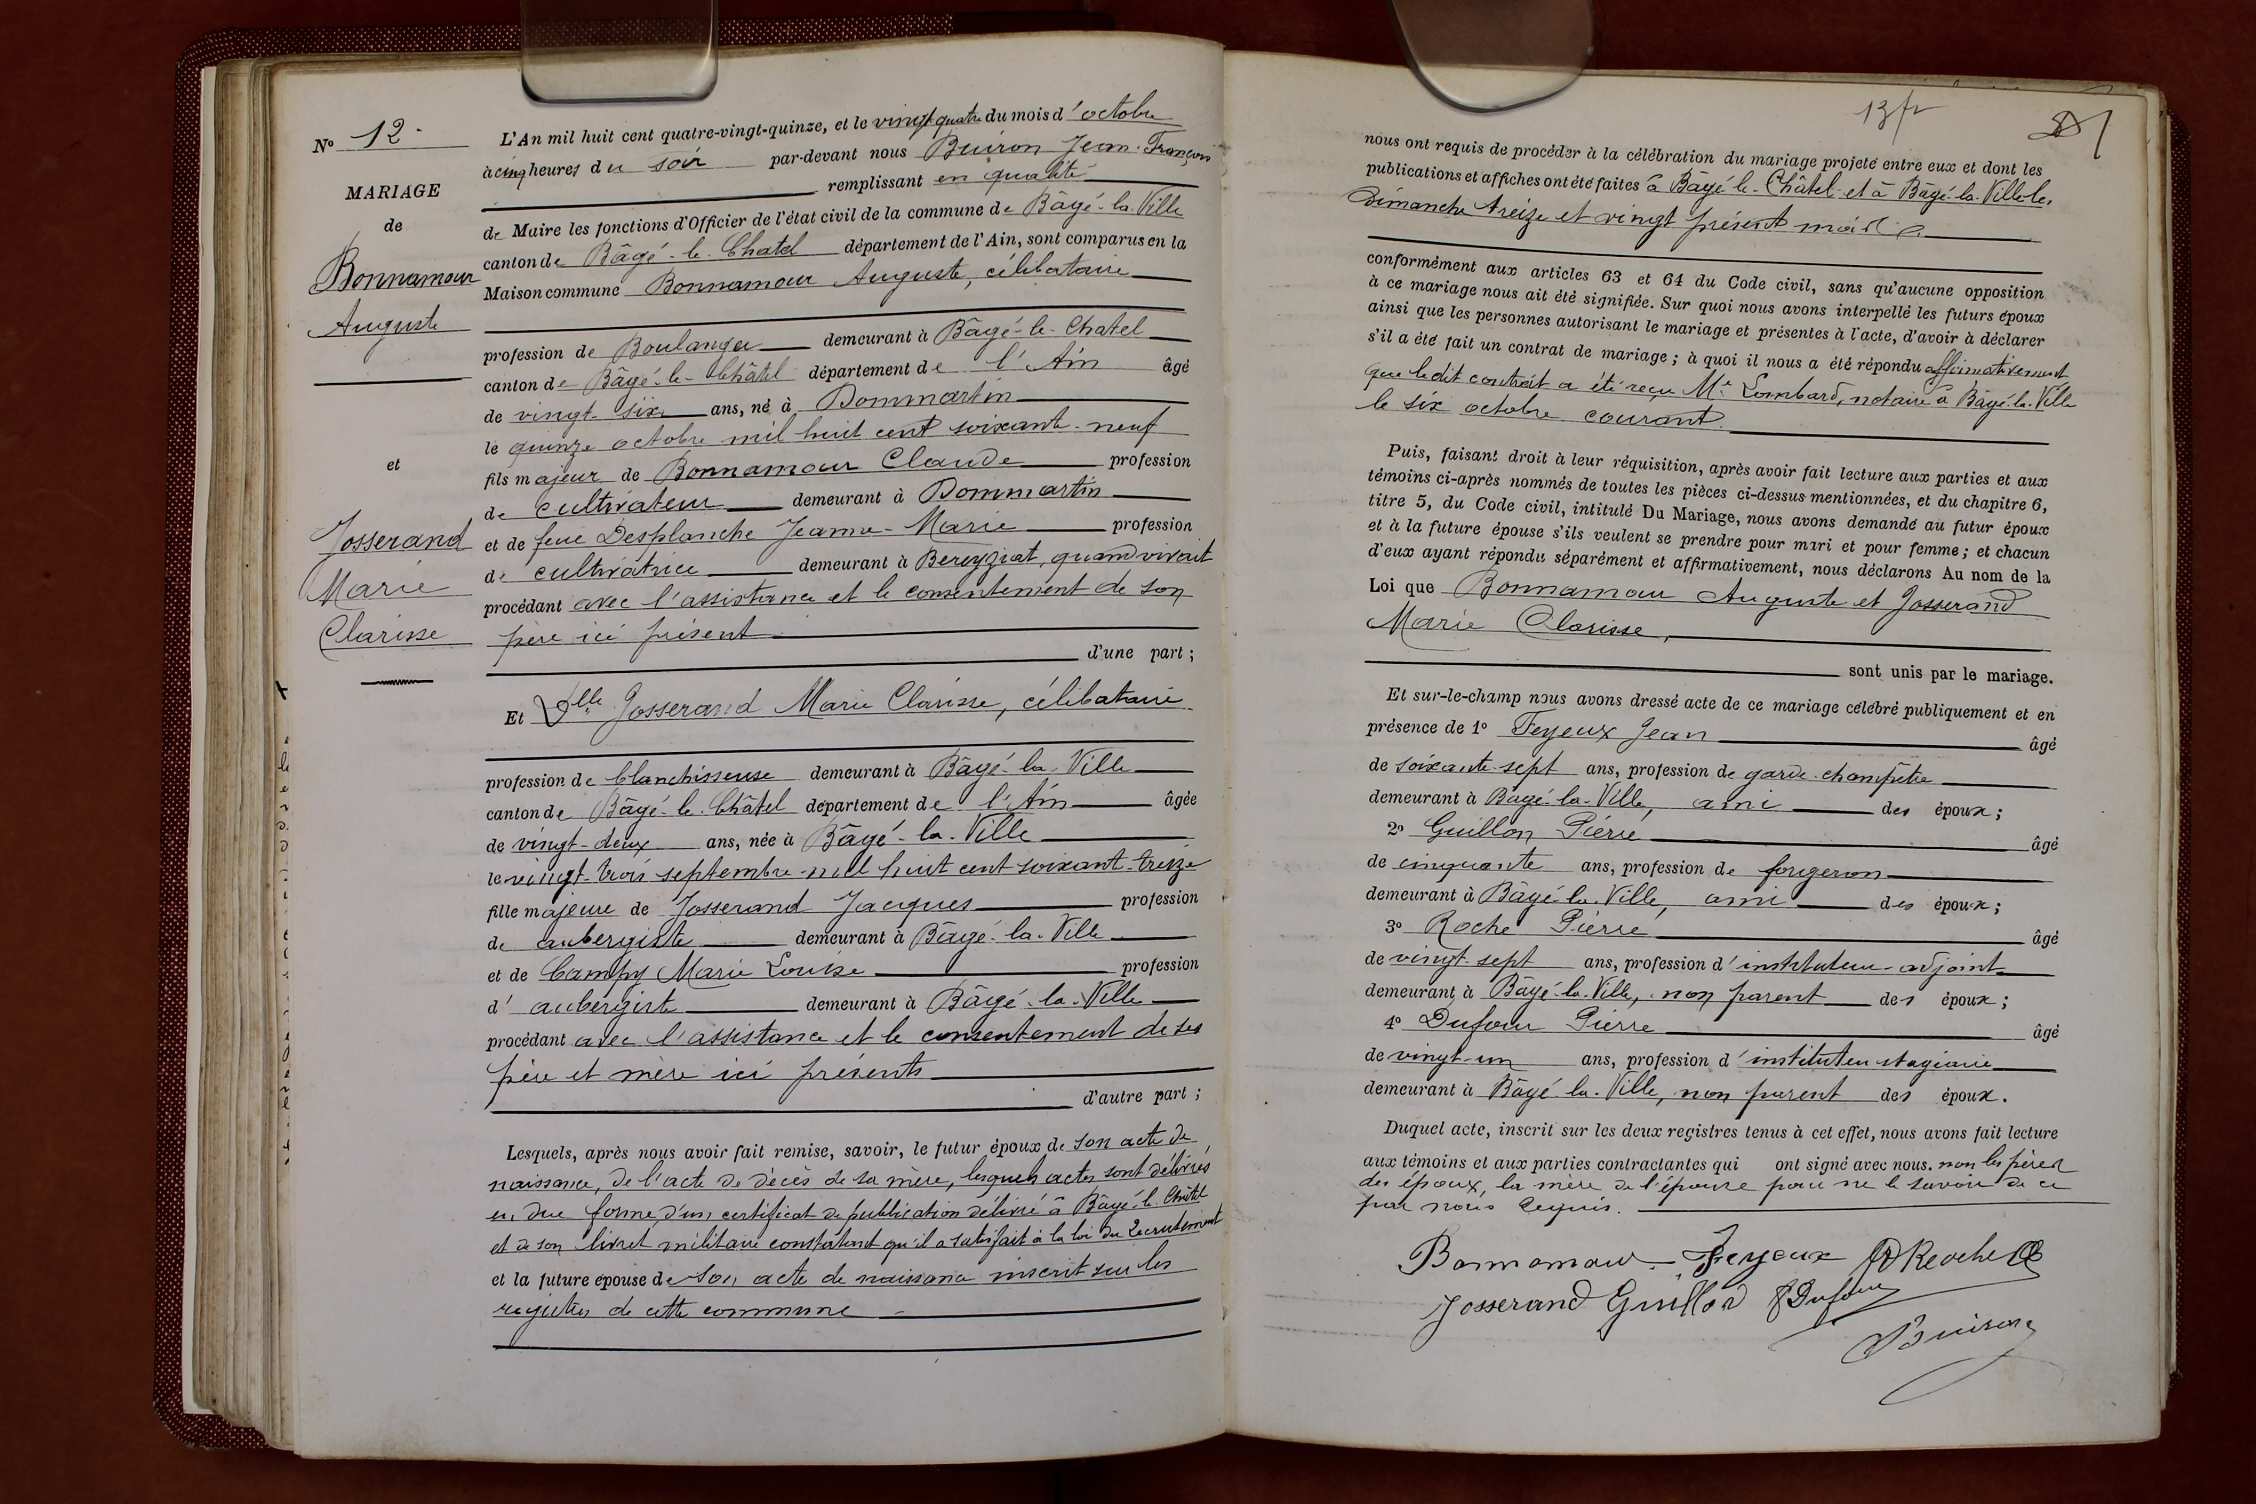 No 12
MARIAGE
de
Bonnamour
Auguste
et
Josserand
Marie
Clarisse
L'An mil huit cent quatre-vingt-quinze, et le vingt quatre du mois d'octobre
à cinq heures du soir par-devant nous Buiron Jean-François
remplissant en qualité
de Maire les fonctions d'Officier de l'état civil de la commune de Bâgé-la-Ville
canton de Bâgé-le-Chatel département de l'Ain, sont comparus en la
Maison commune Bonnamour Auguste, célibataire
profession de Boulanger demeurant à Bâgé-le-Chatel
canton de Bâgé-le-Châtel département de l'Ain âgé
de vingt-six ans, né à Dommartin
le quinze octobre mil huit cent soixante-neuf
fils majeur de Bonnamour Claude profession
de cultivateur demeurant à Dommartin
et de feue Desplanche Jeanne-Marie profession
de cultivatrice demeurant à Bereyziat, quand vivait
procédant avec l'assistance et le consentement de son
père ici présent
d'une part ;
Et Dlle Josserand Marie Clarisse, célibataire
profession de blanchisseuse demeurant à Bâgé-la-Ville
canton de Bâgé-le-Châtel département de l'Ain âgée
de vingt-deux ans, née à Bâgé-la-Ville
le vingt-trois septembre mil huit cent soixant-treize
fille majeure de Josserand Jacques profession
de aubergiste demeurant à Bâgé-la-Ville
et de Campy Marie Louise profession
d'aubergiste demeurant à Bâgé-la-Ville
procédant avec l'assistance et le consentement de ses
père et mère ici présents
d'autre part ;
Lesquels, après nous avoir fait remise, savoir, le futur époux de son acte de
naissance, de l'acte de décès de sa mère, lesquels actes sont délivrés
en due forme, d'un certificat de publication délivré à Bâgé-le-Châtel
et de son livret militaire constatant qu'il a satisfait à la loi du recrutement
et la future épouse de son acte de naissance inscrit sur les
registres de cette commune
13 fr
nous ont requis de procéder à la célébration du mariage projeté entre eux et dont les
publications et affiches ont été faites à Bâgé-le-Châtel et à Bâgé-la-Ville les
dimanche treize et vingt présent mois
conformément aux articles 63 et 64 du Code civil, sans qu'aucune opposition
à ce mariage nous ait été signifiée. Sur quoi nous avons interpellé les futurs époux
ainsi que les personnes autorisant le mariage et présentes à l'acte, d'avoir à déclarer
s'il a été fait un contrat de mariage ; à quoi il nous a été répondu affirmativement
que ledit contrat a été reçu Me Lombard, notaire à Bâgé-la-Ville
le six octobre courant.
Puis, faisant droit à leur réquisition, après avoir fait lecture aux parties et aux
témoins ci-après nommés de toutes les pièces ci-dessus mentionnées, et du chapitre 6,
titre 5, du Code civil, intitulé Du Mariage, nous avons demandé au futur époux
et à la future épouse s'ils veulent se prendre pour mari et pour femme ; et chacun
d'eux ayant répondu séparément et affirmativement, nous déclarons Au nom de la
Loi que Bonnamour Auguste et Josserand
Marie Clarisse,
sont unis par le mariage.
Et sur-le-champ nous avons dressé acte de ce mariage célébré publiquement et en
présence de 1o Feyeux Jean âgé
de soixante-sept ans, profession de garde-champêtre
demeurant à Bâgé-la-Ville, ami des époux ;
2o Guillon Pierre âgé
de cinquante ans, profession de forgeron
demeurant à Bâgé-la-Ville, ami des époux ;
3o Roche Pierre âgé
de vingt-sept ans, profession d'instituteur-adjoint
demeurant à Bâgé-la-Ville, non parent des époux ;
4o Dufour Pierre âgé
de vingt-un ans, profession d'instituteur stagiaire
demeurant à Bâgé-la-Ville, non parent des époux.
Duquel acte, inscrit sur les deux registres tenus à cet effet, nous avons fait lecture
aux témoins et aux parties contractantes qui ont signé avec nous. non les pères
des époux, la mère de l'épouse pour ne le savoir de ce
par nous requis.
Bonnamour Feyeux Roche
Josserand Guillon Dufour
Buiron